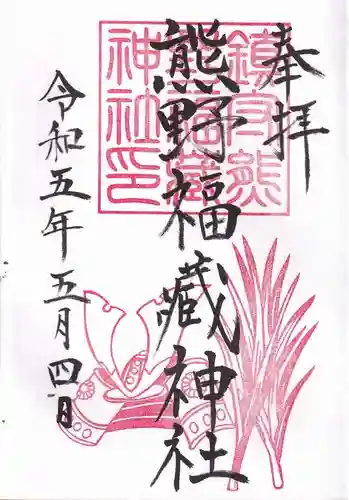 奉拝
熊野福蔵神社
令和五年五月四日
鎮守熊
神社印